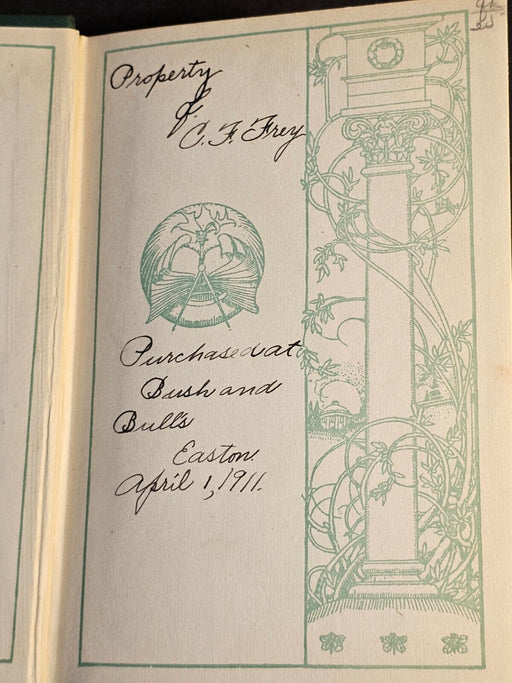 Property
of
C. F. Frey
Purchased at
Bush and
Bull's
Easton.
April 1, 1911.